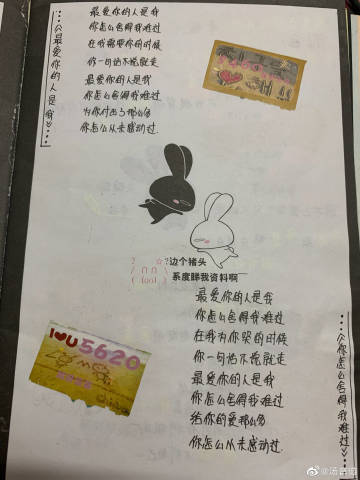 最爱你的人是我
你怎么舍得我难过
在我需要你的时候
你一句话不说就走
最爱你的人是我
你怎么舍得我难过
为你付出了那么多
你怎么从未感动过.
《最爱你的人是我》
边个猪头
系度睇我资料啊
I♥U 5620
最爱你的人是我
你怎么舍得我难过
在我为你哭的时候
你一句话不说就走
最爱你的人是我
你怎么舍得我难过
给你的爱那么多
你怎么从未感动过.
《你怎么舍得我难过》